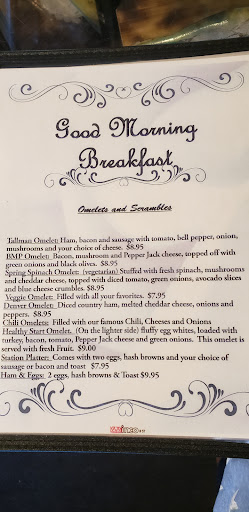 Good Morning
Breakfast
Omelets and Scrambles
Tallman Omelet: Ham, bacon and sausage with tomato, bell pepper, onion,
mushrooms and your choice of cheese. $8.95
BMP Omelet: Bacon, mushroom and Pepper Jack cheese, topped off with
green onions and black olives. $8.95
Spring Spinach Omelet: (vegetarian) Stuffed with fresh spinach, mushrooms
and cheddar cheese, topped with diced tomato, green onions, avocado slices
and blue cheese crumbles. $8.95
Veggie Omelet: Filled with all your favorites. $7.95
Denver Omelet: Diced country ham, melted cheddar cheese, onions and
peppers. $8.95
Chili Omelets: Filled with our famous Chili, Cheeses and Onions
Healthy Start Omelet. (On the lighter side) fluffy egg whites, loaded with
turkey, bacon, tomato, Pepper Jack cheese and green onions. This omelet is
served with fresh Fruit. $9.00
Station Platter: Comes with two eggs, hash browns and your choice of
sausage or bacon and toast $7.95
Ham & Eggs: 2 eggs, hash browns & Toast $9.95